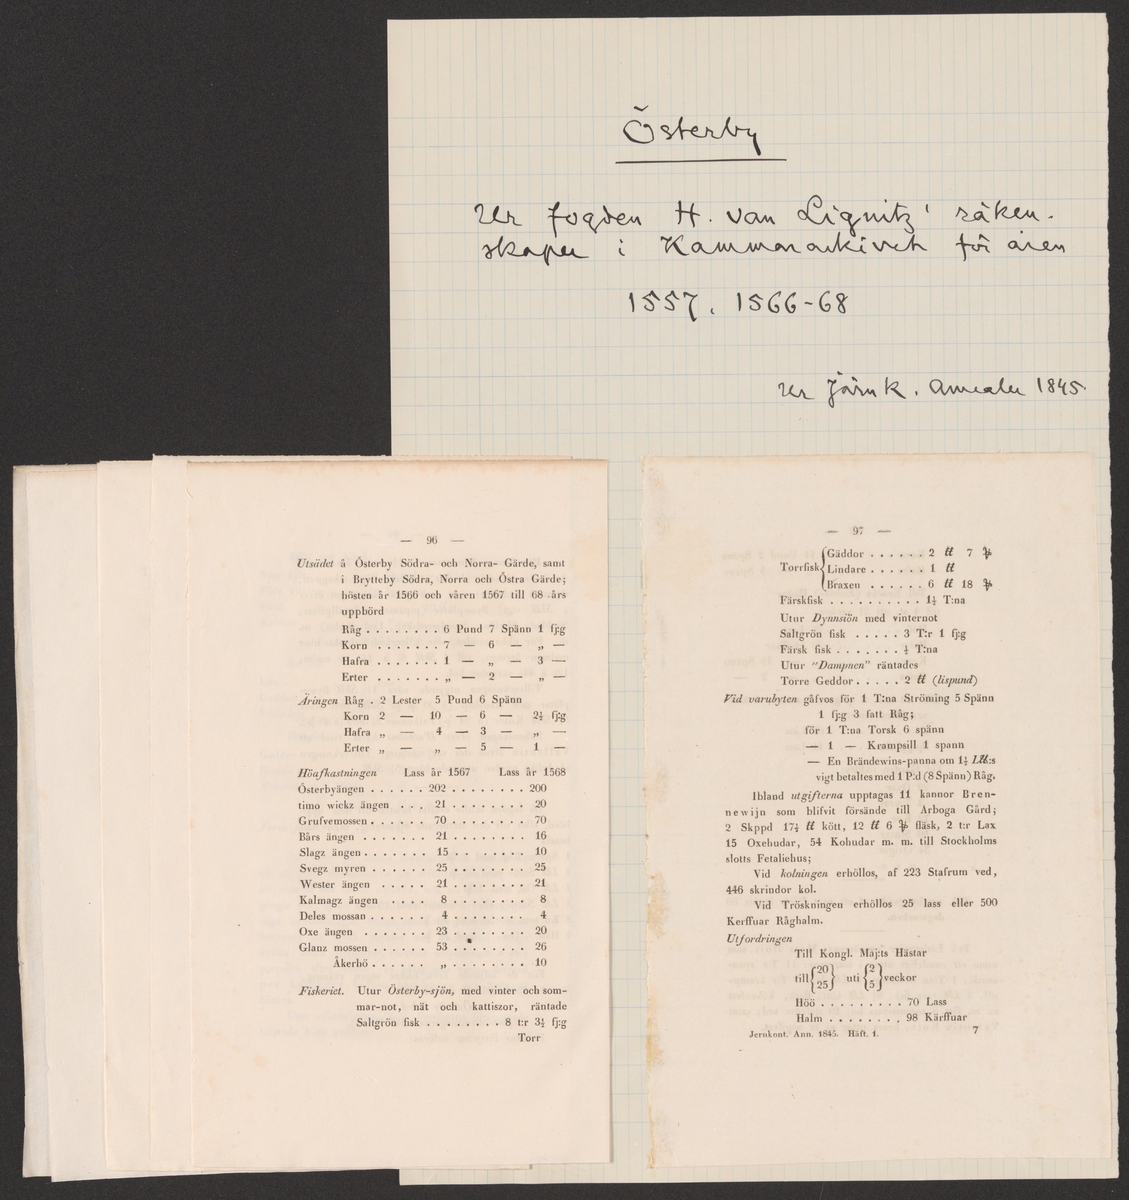 Österby
Ur fogden H. van Lignitz' räken-
skaper i Kammararkivet för åren
1557, 1566-68
Ur Järnk. Annaler 1845.
— 96 —
Utsädet å Österby Södra- och Norra- Gärde, samt
i Brytteby Södra, Norra och Östra Gärde;
hösten år 1566 och våren 1567 till 68 års
uppbörd
Råg . . . . . . . . 6 Pund 7 Spänn 1 fj:g
Korn . . . . . . . 7 — 6 — „ —
Hafra . . . . . . . 1 — „ — 3 —
Erter . . . . . . . „ — 2 — „ —
Äringen Råg . 2 Lester 5 Pund 6 Spänn
Korn 2 — 10 — 6 — 2½ fj:g
Hafra „ — 4 — 3 — „ —
Erter „ — „ — 5 — 1 —
Höafkastningen Lass år 1567 Lass år 1568
Österbyängen . . . . . . 202 . . . . . . . . . 200
timo wickz ängen . . . 21 . . . . . . . . 20
Grufvemossen . . . . . . 70 . . . . . . . . 70
Bårs ängen . . . . . . . 21 . . . . . . . . 16
Slagz ängen . . . . . . . 15 . . . . . . . . 10
Svegz myren . . . . . . 25 . . . . . . . . 25
Wester ängen . . . . . 21 . . . . . . . . 21
Kalmagz ängen . . . . 8 . . . . . . . . 8
Deles mossan . . . . . . 4 . . . . . . . . 4
Oxe ängen . . . . . . . 23 . . . . . . . . 20
Glanz mossen . . . . . . 53 . . . . . . . . 26
Åkerhö . . . . . . „ . . . . . . . . 10
Fiskeriet. Utur Österby-sjön, med vinter och som-
mar-not, nät och kattiszor, räntade
Saltgrön fisk . . . . . . . . 8 t:r 3½ fj:g
Torr
— 97 —
Gäddor . . . . . . 2 ℔ 7
Torrfisk Lindare . . . . . . 1 ℔
Braxen . . . . . . 6 ℔ 18
Färskfisk . . . . . . . . . . 1½ T:na
Utur Dynnsiön med vinternot
Saltgrön fisk . . . . . 3 T:r 1 fj:g
Färsk fisk . . . . . . . ½ T:na
Utur "Dampnen" räntades
Torre Geddor . . . . . 2 ℔ (lispund)
Vid varubyten gåfvos för 1 T:na Strömîng 5 Spänn
1 fj:g 3 fatt Råg;
för 1 T:na Torsk 6 spänn
— 1 — Krampsill 1 spann
— En Brändewins-panna om 1½ L℔:s
vigt betaltes med 1 P:d (8 Spänn) Råg.
Ibland utgifterna upptagas 11 kannor Bren-
newijn som blifvit försände till Arboga Gård;
2 Skppd 17½ ℔ kött, 12 ℔ 6 fläsk, 2 t:r Lax
15 Oxehudar, 54 Kohudar m. m. till Stockholms
slotts Fetaliehus;
Vid kolningen erhöllos, af 223 Stafrum ved,
446 skrindor kol.
Vid Tröskningen erhöllos 25 lass eller 500
Kerffuar Råghalm.
Utfordringen
Till Kongl. Maj:ts Hästar
till {20 25} uti {2 5} veckor
Höö . . . . . . . . . 70 Lass
Halm . . . . . . . . 98 Kärffuar
Jernkont. Ann. 1845. Häft. 1. 7